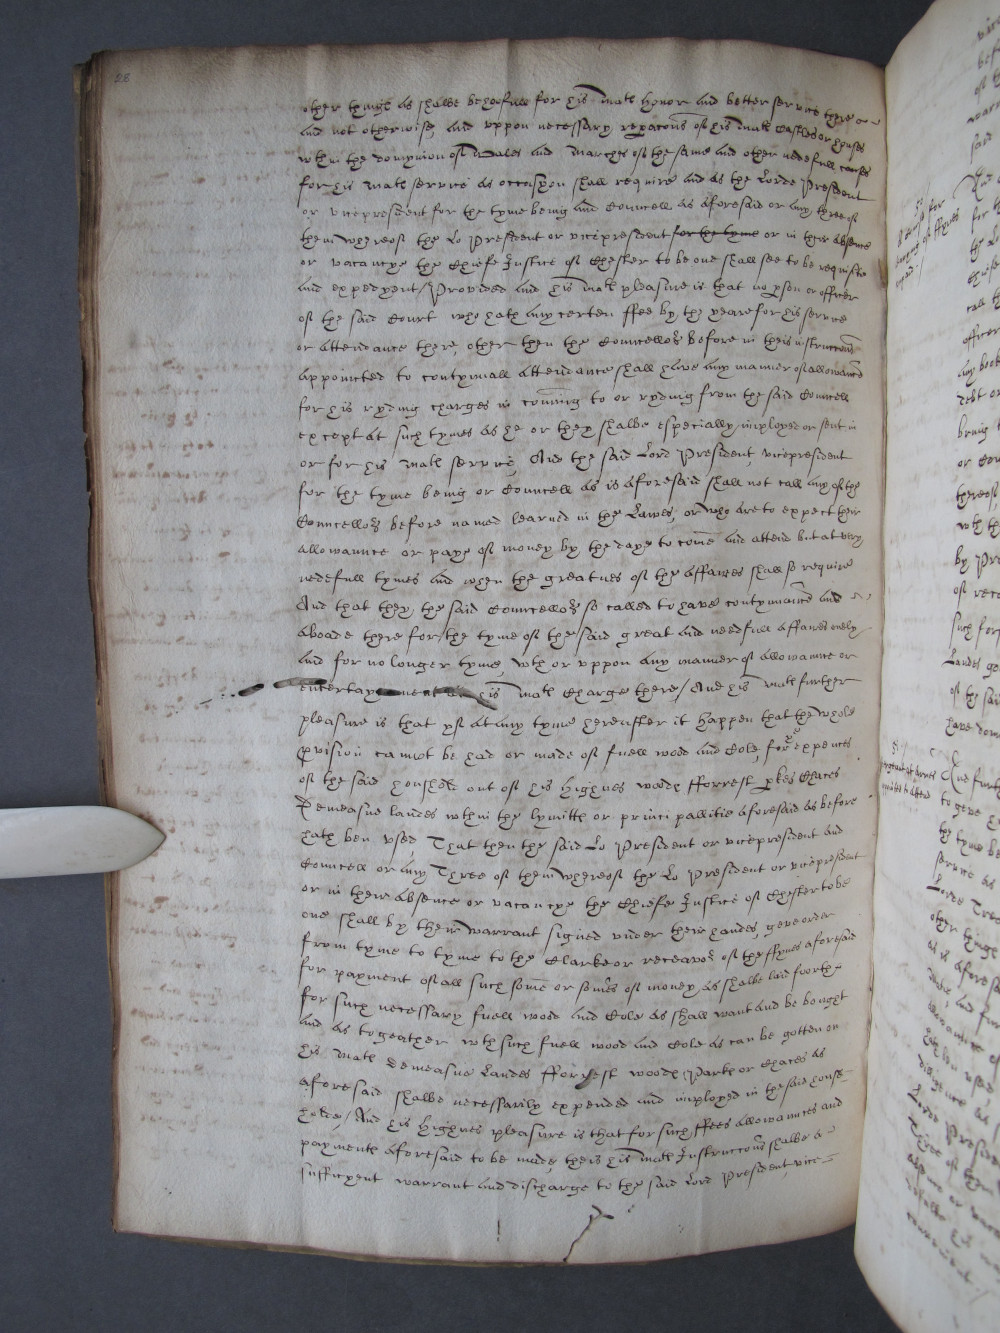 28
other things as shalbe behoofull for his mats honor and better service there
and not otherwise, and uppon necessary repacons of his mats Castles or houses
wthin the dominion of Wales and Marches of the same and other nedefull causes
for his mats service as occasyon shall require and as the Lorde President
or vicepresident for the tyme being and Councell as aforesaid or any three of
them whereof the Lo President or vicepresident for the tyme or in their absence
or vacancye the Chiefe Justice of Chester to be one shall see to be requisite
and expedyent / Provided and his mats pleasure is that no pson or officer
of the said Court who hath any certen ffee by the yeare for his service
or attendance there, other then the Councellors before in theis instruccons
appointed to contynuall attendance shall have any manner of allowance
for his ryding charges in coming to or ryding from the said Councell
except at such tymes as he or they shalbe especially imployed or sent in
or for his mats service, And the said Lord President, vicepresident
for the tyme being or Councell as is aforesaid shall not call any of the
Councellors before named learned in the Lawes, or who are to expect their
allowannce or paye of money by the daye to come and attend but at very
nedefull tymes and when the greatnes of the affaires shall so require
And that they the said Councellors so called to have contynuance and
aboade there for the tyme of the said great and needfull affaires onely
and for no longer tyme, wth or uppon any manner of allowannce or
entertaynement his mats Charge there / And his mats further
pleasure is that yf at any tyme hereaffter it happen that the whole
pvision cannot be had or made of fuell wood and Cole, for the expences
of the said houshold out of his highnes woods fforrest pkes Chaces
Demeasne landes wthin the lymitts or principallitie aforesaid as before
hath ben used That then the said Lo President or vicepresident and
Councell or any Three of them whereof the Lo President or vicepresident
or in their absence or vacancye the Chiefe Justice of Chester to be
one shall by their warrant signed under their handes, geve order
from tyme to tyme to the Clarke or receavor of the ffynes aforesaid
for payment of all such some or somes of money as shalbe laid foorth
for such necessary fuell wood and Cole as shall want and be bought
and as togeather wth such fuell wood and Cole as can be gotten on
his mats demeasne Landes fforrest woods Parks or Chaces as
aforesaid shalbe necessarily expended and imployed in the said house
holde, / And his highnes pleasure is that for such ffees allowannces and
payments aforesaid to be made, theis his mats Instruccons shalbe a
sufficyent warrant and discharge to the said Lord President, vice